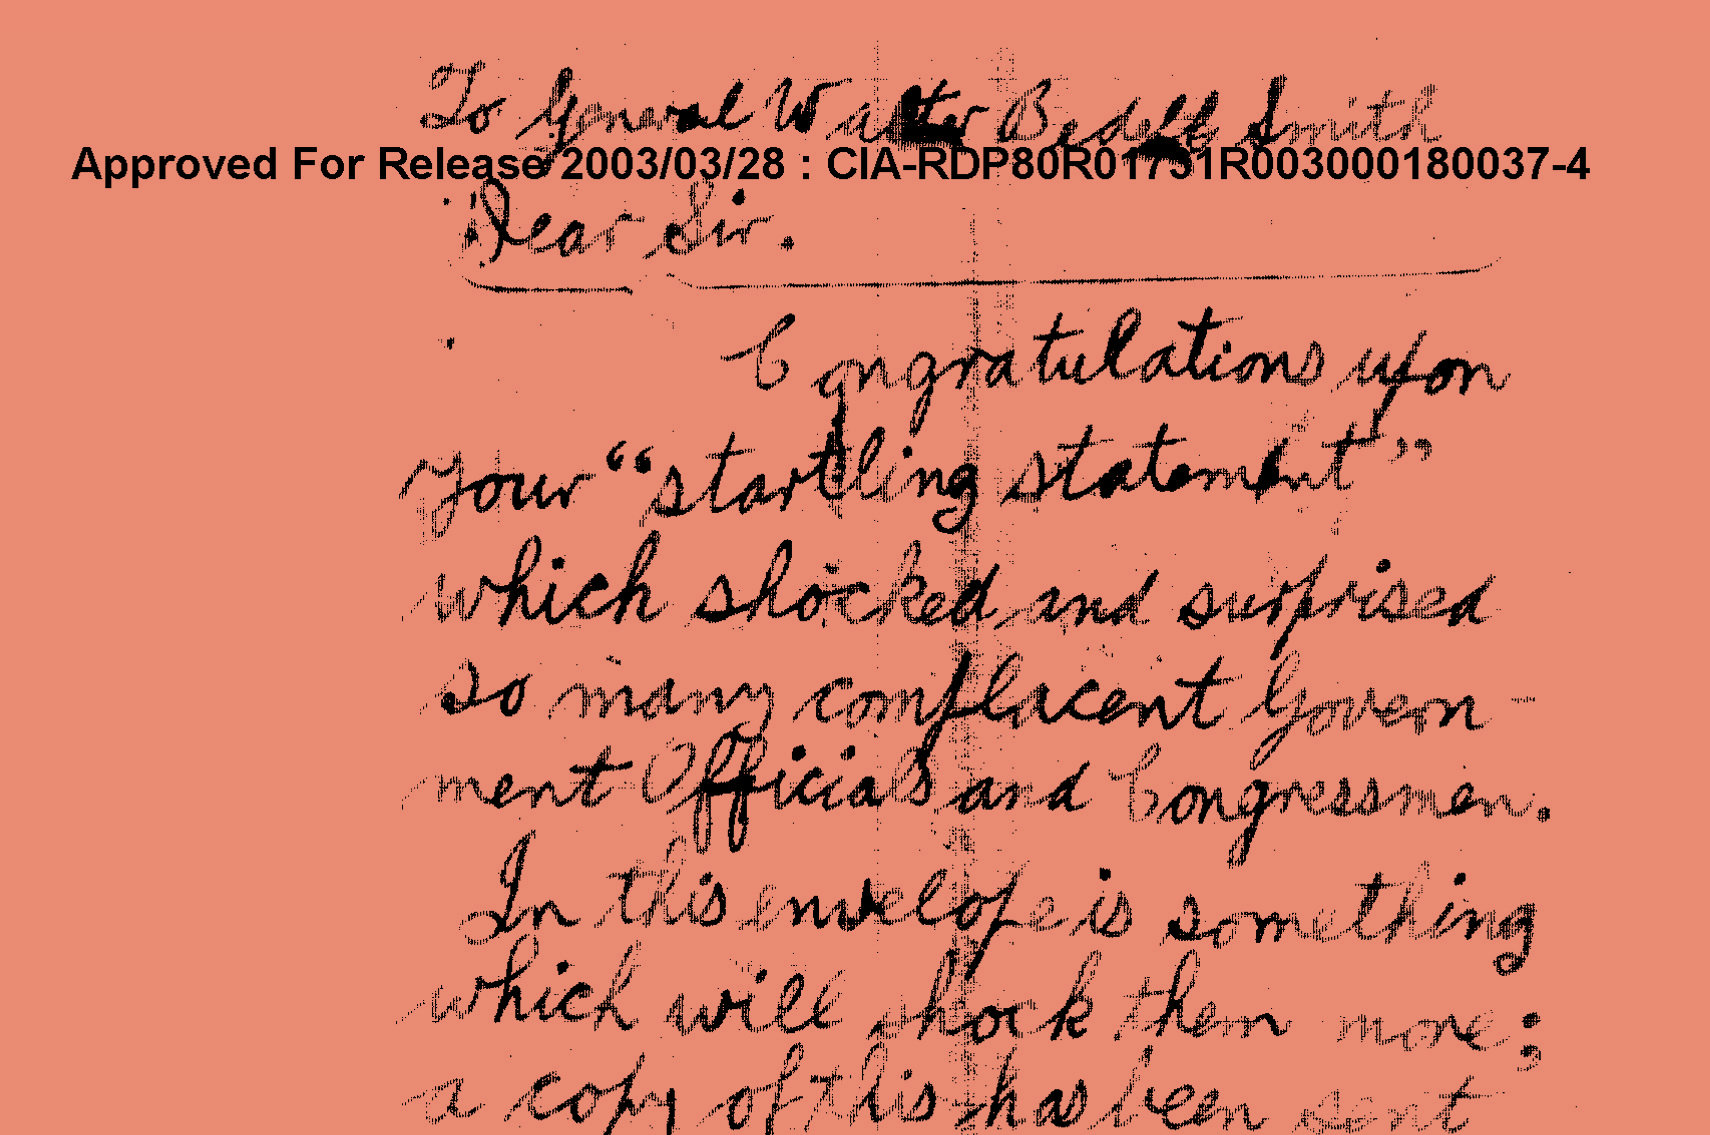 To General Walter Bedell Smith
Approved For Release 2003/03/28 : CIA-RDP80R01731R003000180037-4
Dear Sir.
Congratulations upon
your “startling statement”
which shocked and surprised
so many complacent Govern-
ment Officials and Congressmen.
In this envelope is something
which will shock them more;
a copy of this has been sent